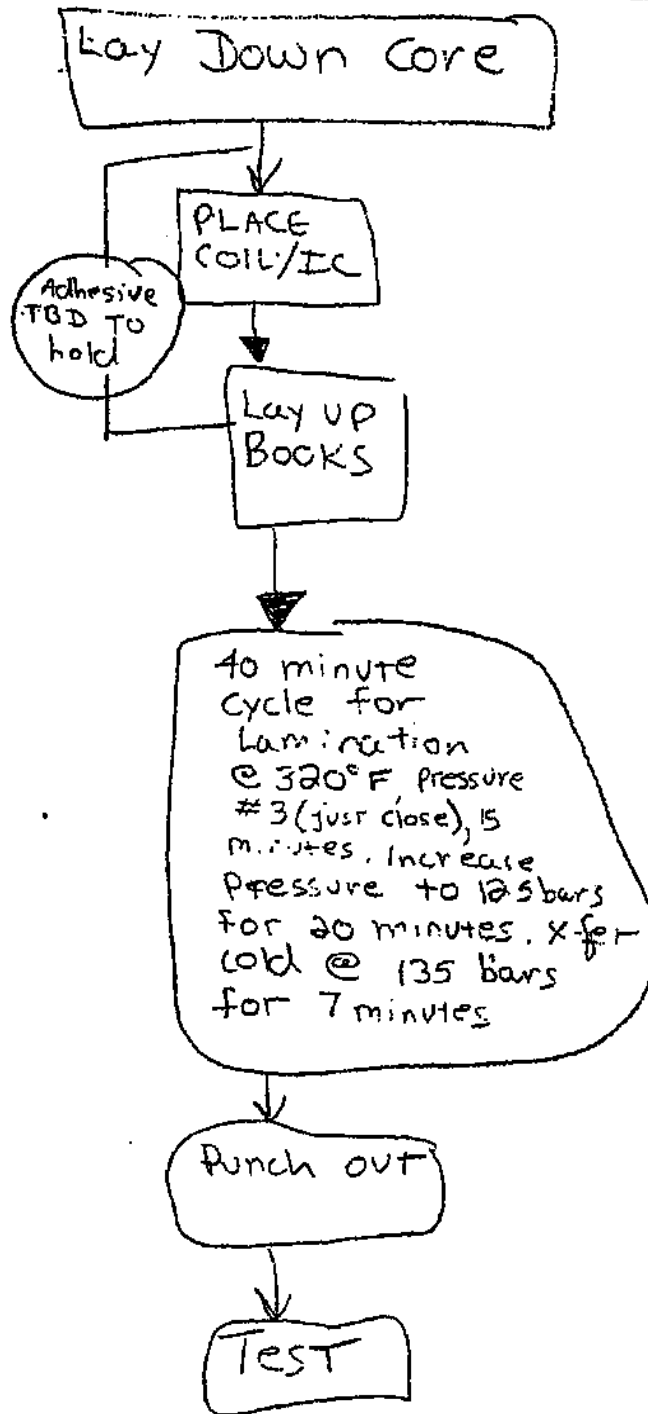 Lay Down Core
PLACE
COIL/IC
Adhesive
TBD TO
hold
Lay up
BOOKS
40 minute
cycle for
Lamination
@ 320°F, pressure
#3 (just close), 15
minutes. Increase
pressure to 125 bars
for 20 minutes. X-fer
cold @ 135 bars
for 7 minutes
Punch out
Test